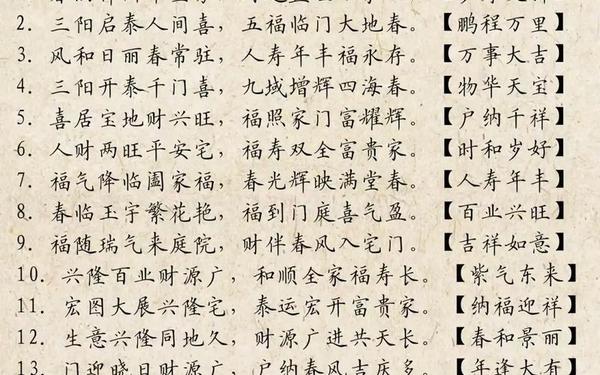 2. 三阳启泰人间喜，五福临门大地春。【鹏程万里】
3. 风和日丽春常驻，人寿年丰福永存。【万事大吉】
4. 三阳开泰千门喜，九域增辉四海春。【物华天宝】
5. 喜居宝地财兴旺，福照家门富耀辉。【户纳千祥】
6. 人财两旺平安宅，福寿双全富贵家。【时和岁好】
7. 福气降临阖家福，春光辉映满堂春。【人寿年丰】
8. 春临玉宇繁花艳，福到门庭喜气盈。【百业兴旺】
9. 福随瑞气来庭院，财伴春风入宅门。【吉祥如意】
10. 兴隆百业财源广，和顺全家福寿长。【紫气东来】
11. 宏图大展兴隆宅，泰运宏开富贵家。【纳福迎祥】
12. 生意兴隆同地久，财源广进共天长。【春和景丽】
13. 门迎晓日财源广，户纳春风吉庆多。【年逢大有】